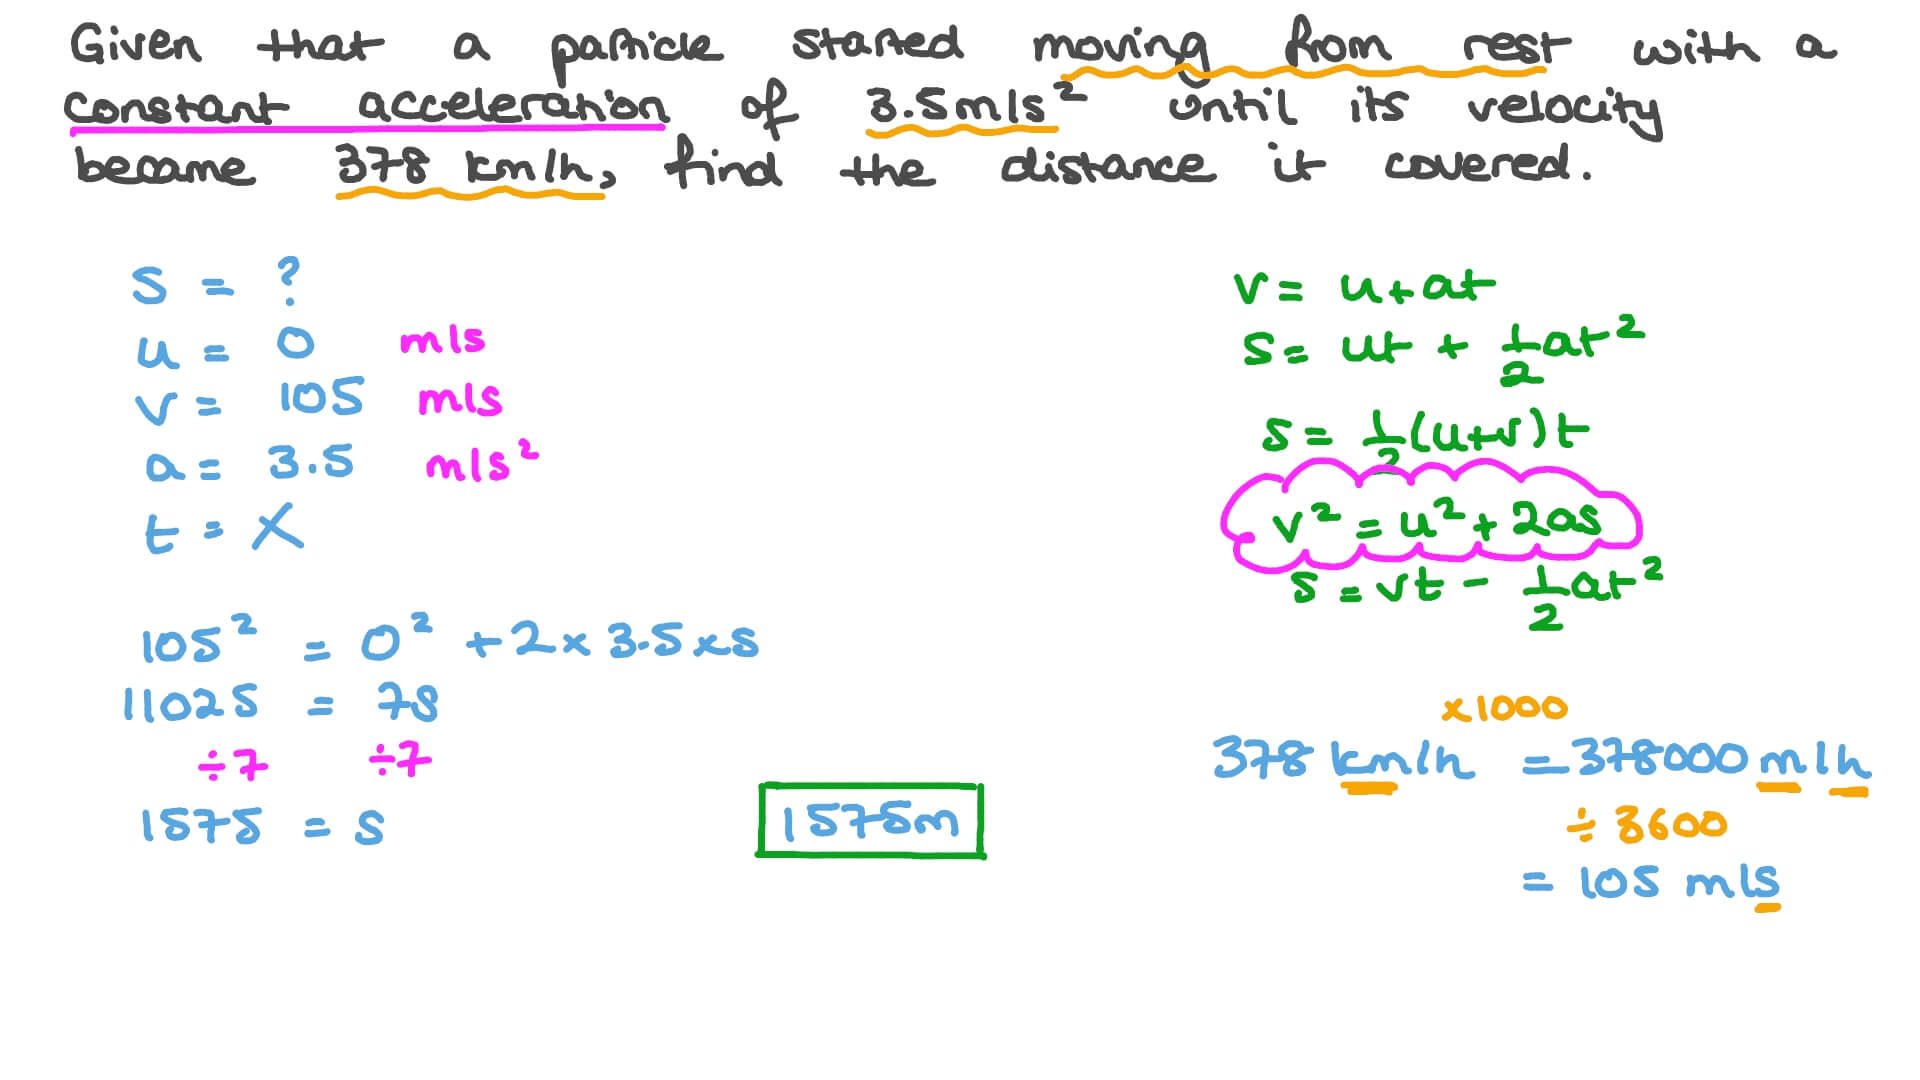 Given that a particle started moving from rest with a
constant acceleration of 3.5m/s² until its velocity
became 378 km/h, find the distance it covered.
s = ?
u = 0 m/s
v = 105 m/s
a = 3.5 m/s²
t = X
105² = 0² + 2 × 3.5 × s
11025 = 7s
÷7 ÷7
1575 = s
1575m
v = u + at
s = ut + 1/2 at²
s = 1/2 (u+v)t
v² = u² + 2as
s = vt - 1/2 at²
×1000
378 km/h = 378000 m/h
÷ 3600
= 105 m/s